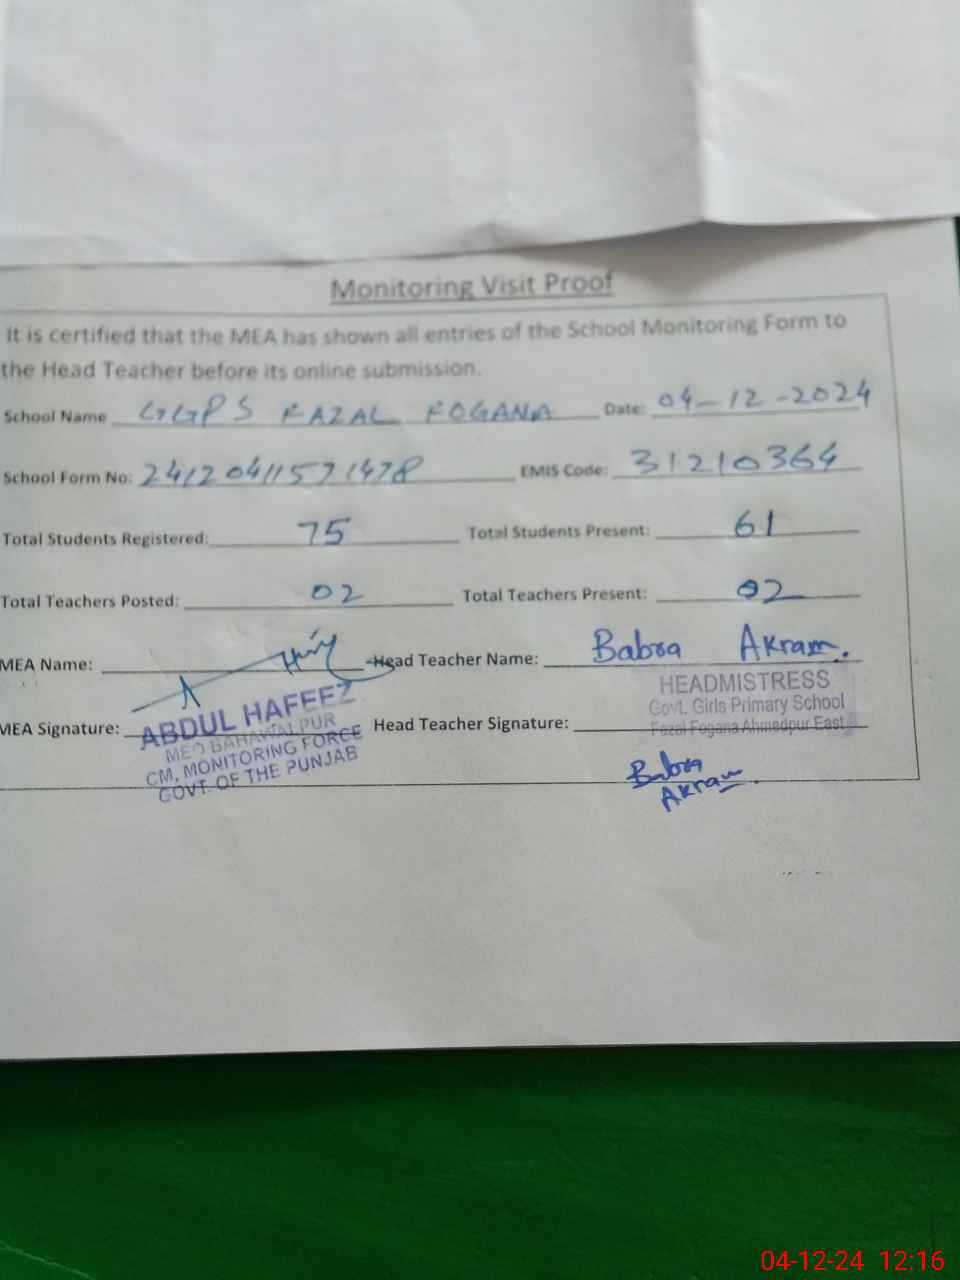 Monitoring Visit Proof
It is certified that the MEA has shown all entries of the School Monitoring Form to
the Head Teacher before its online submission.
School Name GGPS FAZAL FOGANA Date: 04-12-2024
School Form No: 24120411571478 EMIS Code: 31210364
Total Students Registered: 75 Total Students Present: 61
Total Teachers Posted: 02 Total Teachers Present: 02
MEA Name: Head Teacher Name: Babra Akram.
HEADMISTRESS
Govt. Girls Primary School
Fazal Fogana Ahmedpur East
MEA Signature: Head Teacher Signature:
ABDUL HAFEEZ
MEO BAHAWALPUR
CM, MONITORING FORCE
GOVT. OF THE PUNJAB
Babra
Akram.
04-12-24 12:16